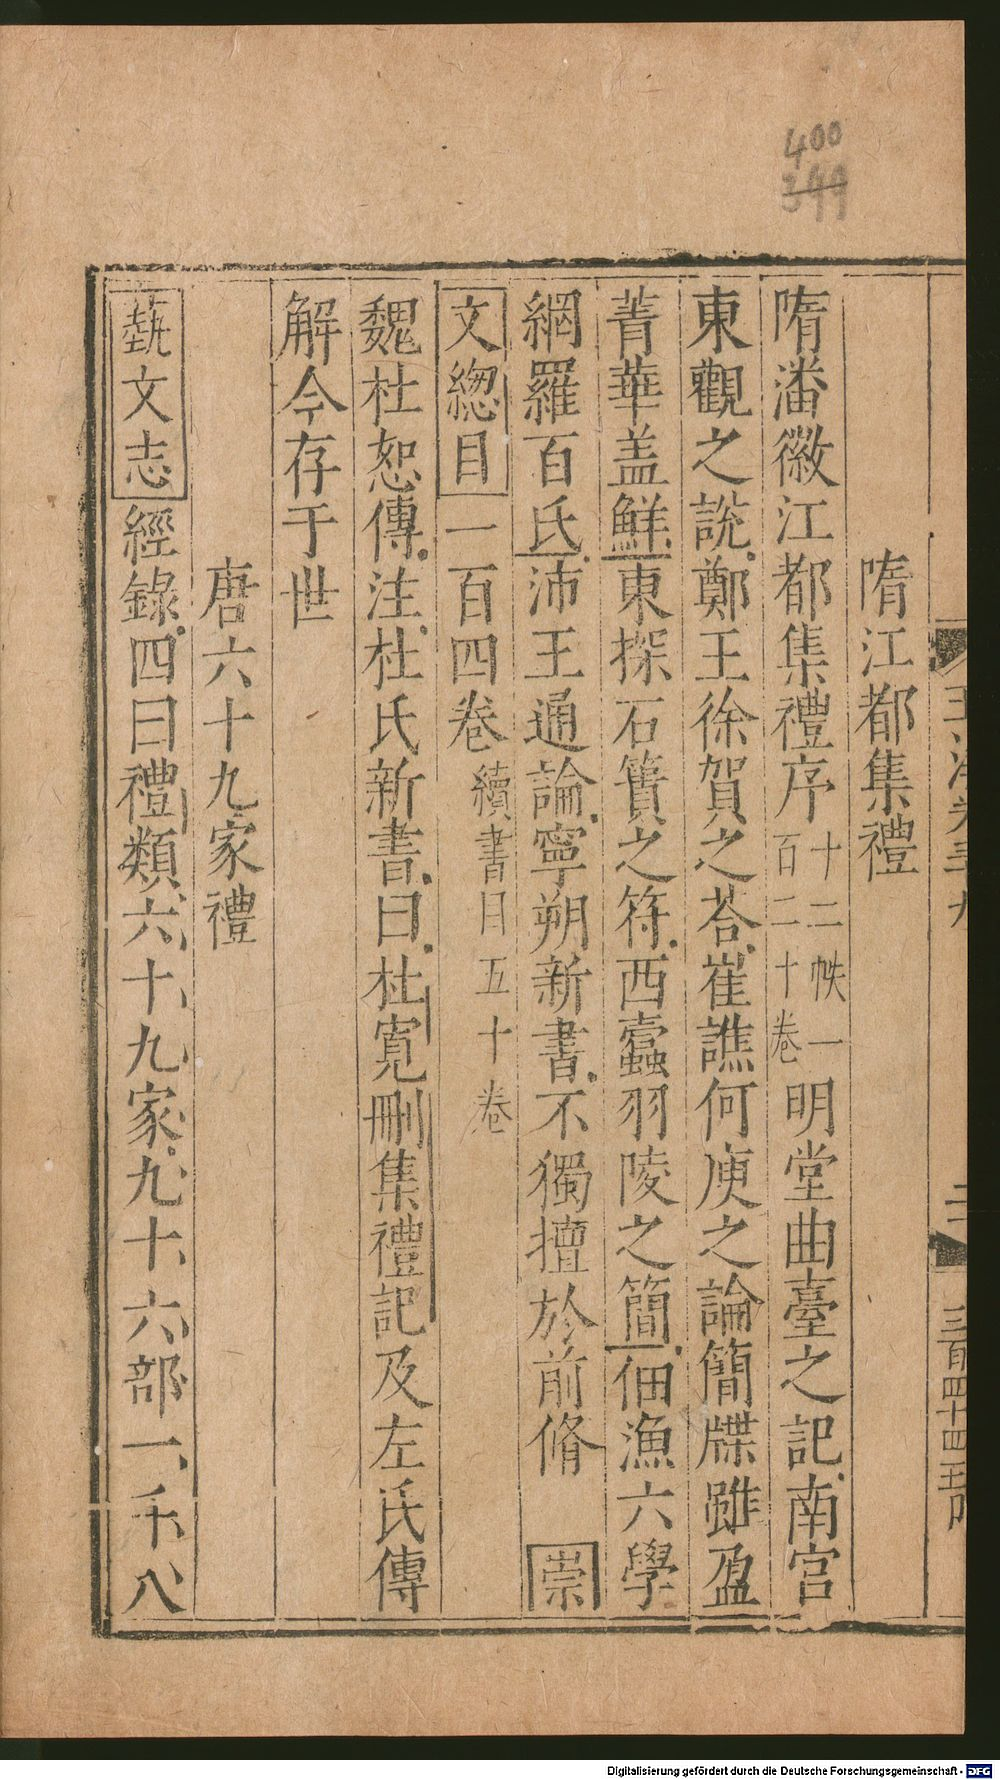 400
399
隋江都集禮
隋潘徽江都集禮序十二帙一百二十卷明堂曲臺之記南宮
東觀之說鄭王徐賀之荅崔譙何庾之論簡牒雖盈
菁華盖鮮東探石簣之符西蠹羽陵之簡佃漁六學
網羅百氏沛王通論寧朔新書不獨擅於前脩 崇
文緫目一百四卷續書目五十卷
魏杜恕傳注杜氏新書曰杜寛刪集禮記及左氏傳
解今存于世
唐六十九家禮
藝文志經錄四曰禮類六十九家九十六部一千八
Digitalisierung gefördert durch die Deutsche Forschungsgemeinschaft - DFG